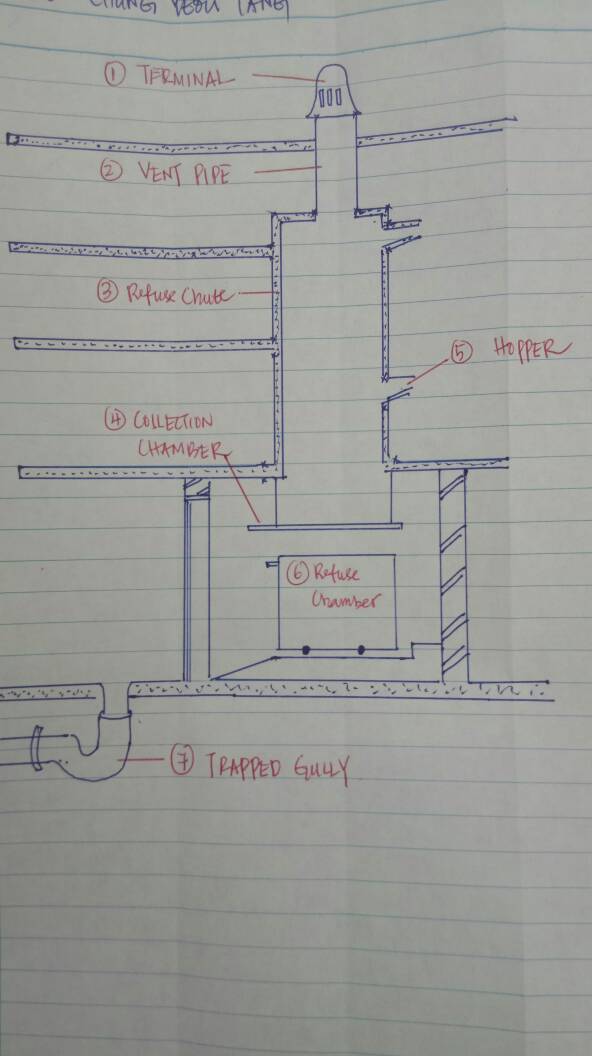 CHUNG
① TERMINAL
② VENT PIPE
③ Refuse Chute
⑤ HOPPER
④ COLLECTION
CHAMBER
⑥ Refuse
Chamber
⑦ TRAPPED GULLY